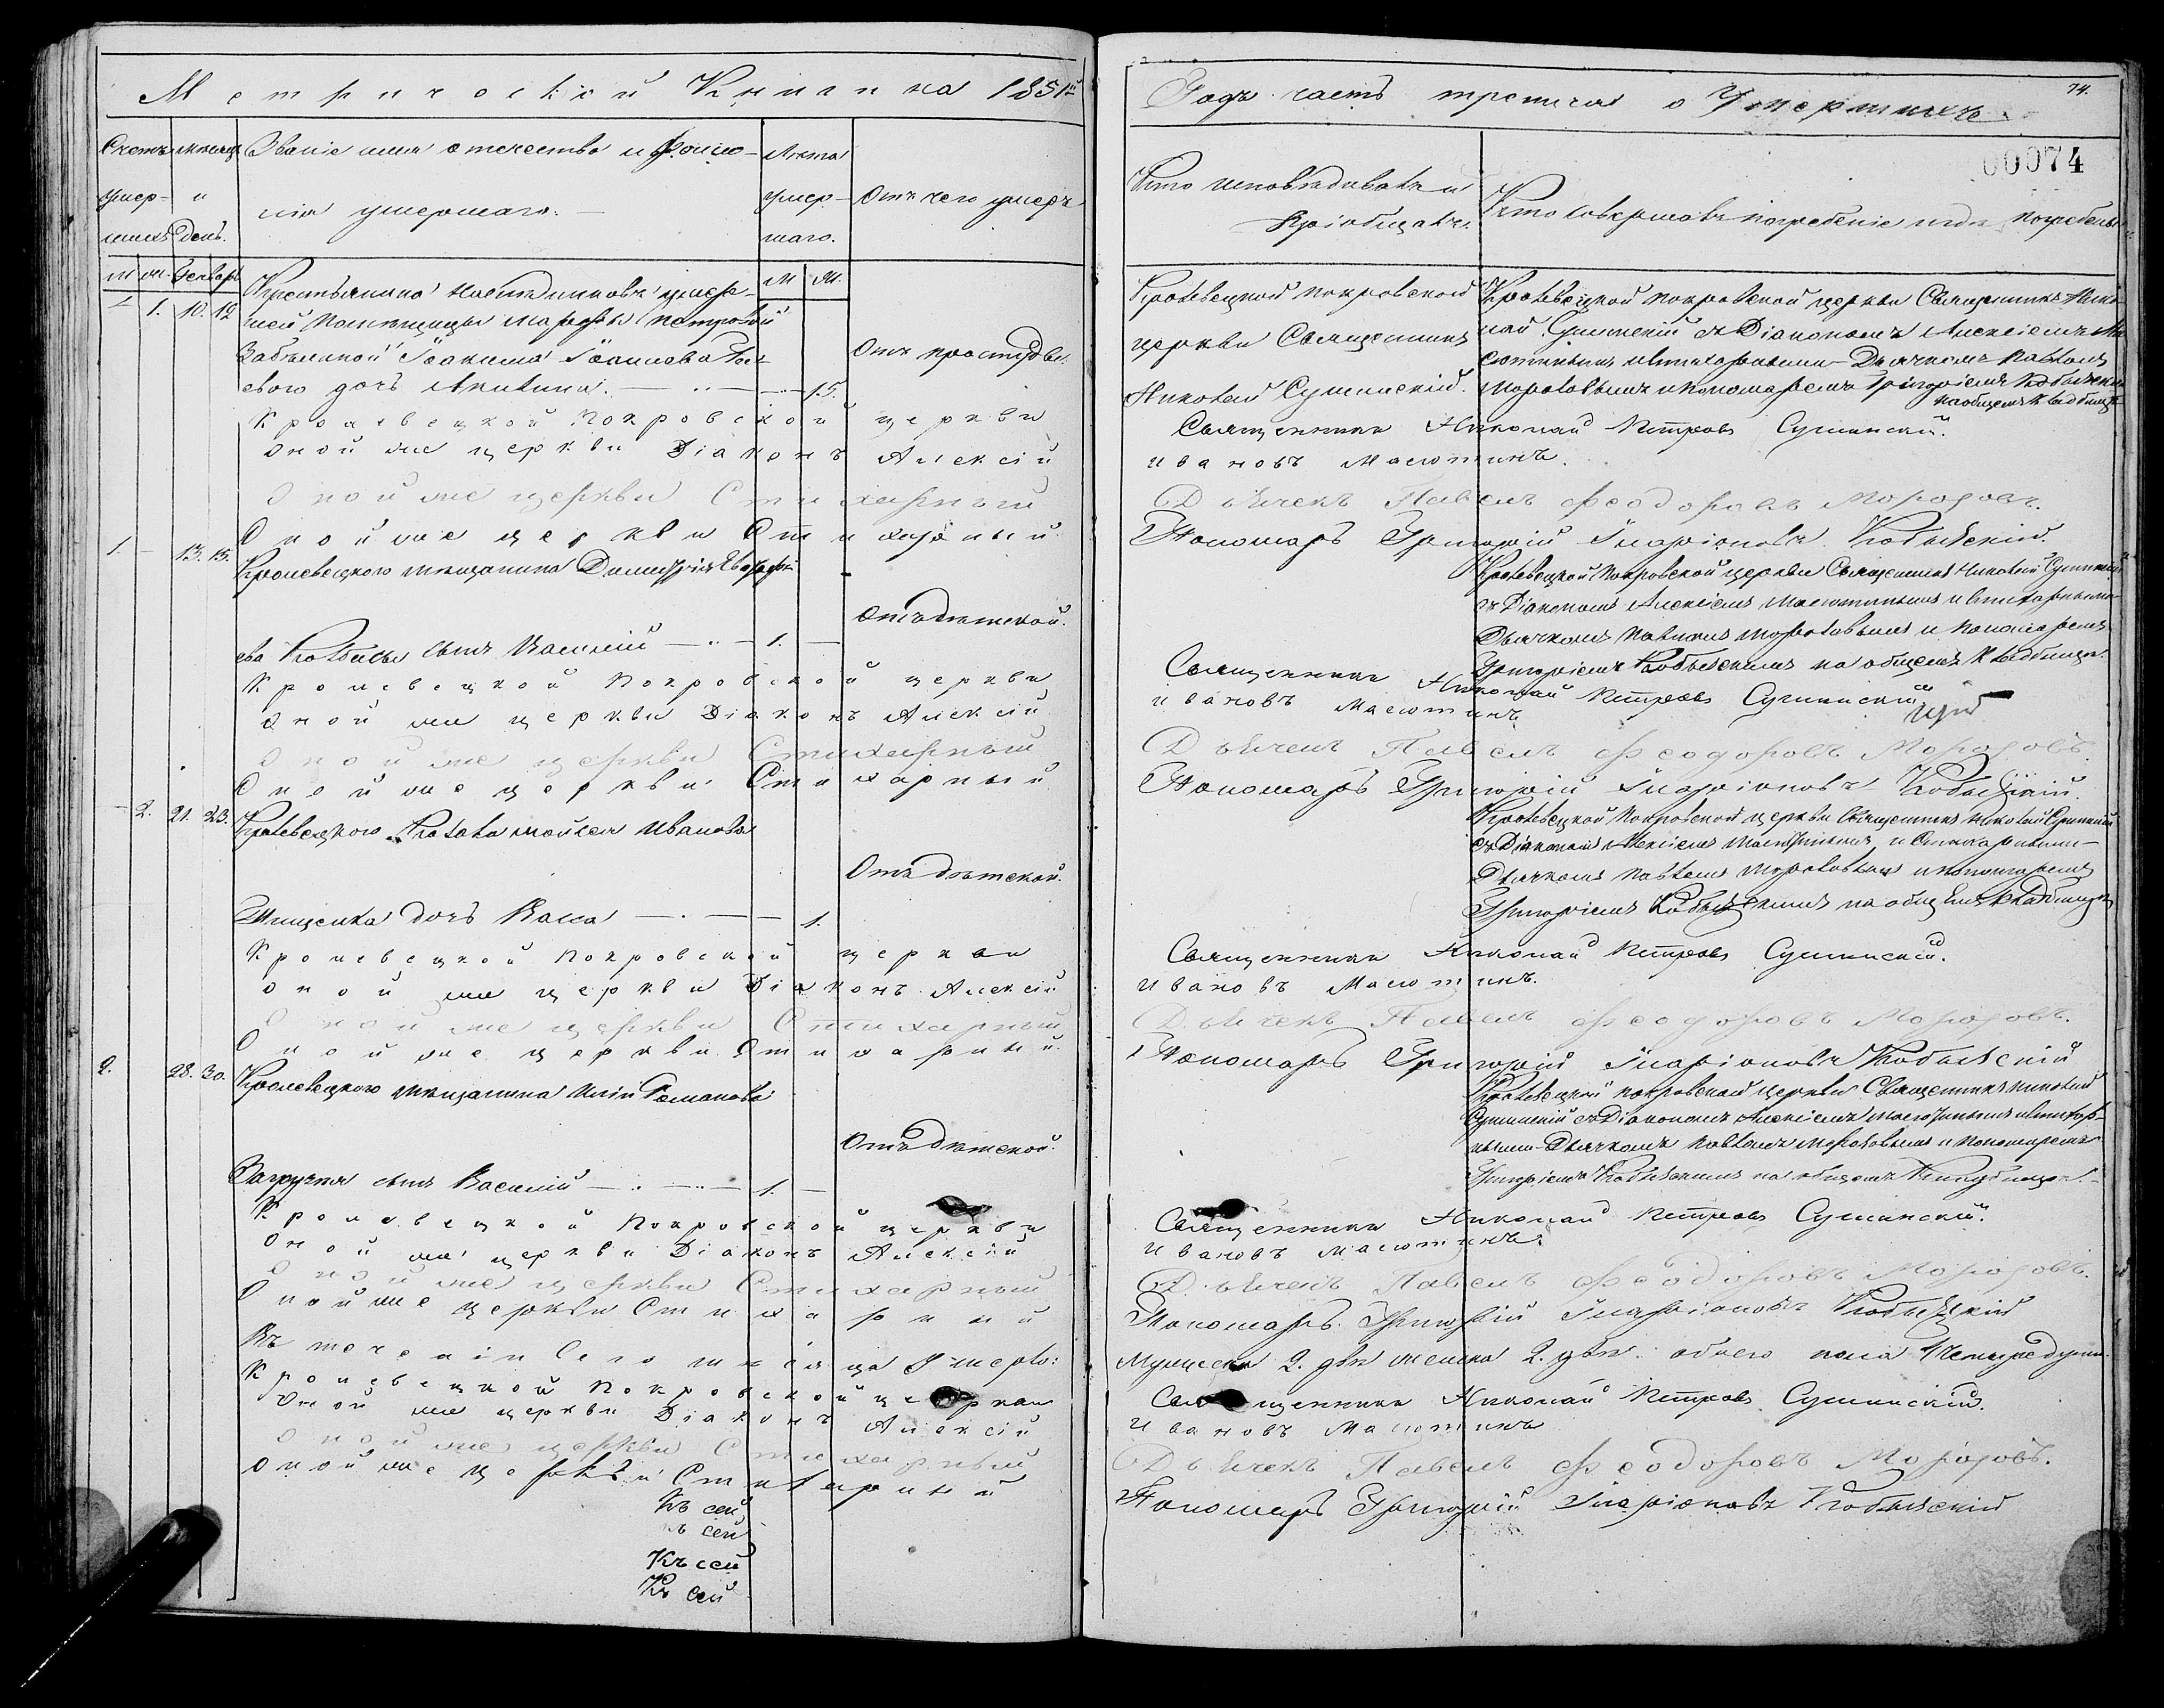 Метрической Книги на 1851й
Годъ часть третья о Умершихъ
74.
00074
Счетъ умер-шихъ
мѣсяцъ и День.
Званіе имя отечество и фамилія умершаго.
Лѣта умер-шаго.
Отъ чего умеръ
Кто исповѣдивалъ и Пріобщалъ.
Кто совершалъ погребеніе и гдѣ погребены
М М
1. 10. 12
Крестьянина наслѣдниковъ умер-
шей помѣщицы Петровой
Забѣлиной Іоакима
дочь Акилина. 15.
Отъ простуды.
Кролевецкой Покровской
церкви Священникъ
Николай Сушинскій.
Кролевецкой Покровской церкви Священникъ Нико-
лай Сушинскій съ Діакономъ Алексіемъ
и стихарными Дьячкомъ Павломъ
Морозовымъ и Пономаремъ Григоріемъ
на общемъ кладбищѣ
Кролевецкой Покровской церкви Священникъ Николай Петровъ Сушинскій.
Оной же церкви Діаконъ Алексій Ивановъ Масютинъ.
Оной же церкви Стихарный Дьячекъ Павелъ Феодоровъ Морозовъ.
Оной же церкви Стихарный Пономарь Григорій Иларіоновъ
1. 13. 15.
Кролевецкого мѣщанина Димитрія
сынъ Василій 1.
Отъ дѣтской.
Кролевецкой Покровской церкви Священникъ Николай
съ Діакономъ Алексіемъ Масютинымъ и стихарными
Дьячкомъ Павломъ Морозовымъ и Пономаремъ
Григоріемъ на общемъ кладбищѣ
Кролевецкой Покровской церкви Священникъ Николай Петровъ Сушинскій
Оной же церкви Діаконъ Алексій Ивановъ Масютинъ
Оной же церкви Стихарный Дьячекъ Павелъ Феодоровъ Морозовъ
Оной же церкви Стихарный Пономарь Григорій Иларіоновъ
2. 21. 23.
Кролевецкого Козака Мойсея Иванова
дочь Васса 1.
Отъ дѣтской.
Кролевецкой Покровской церкви Священникъ Николай
съ Діакономъ Алексіемъ Масютинымъ и Стихарными
Дьячкомъ Павломъ Морозовымъ и пономаремъ
Григоріемъ на общемъ кладбищѣ
Кролевецкой Покровской церкви Священникъ Николай Петровъ Сушинскій.
Оной же церкви Діаконъ Алексій Ивановъ Масютинъ.
Оной же церкви Стихарный Дьячекъ Павелъ Феодоровъ Морозовъ.
Оной же церкви Стихарный Пономарь Григорій Иларіоновъ
2. 28. 30.
Кролевецкого мѣщанина Иліи Романова
сынъ Василій 1.
Отъ дѣтской.
Кролевецкой Покровской церкви Священникъ Николай
Сушинскій съ Діакономъ Алексіемъ Масютинымъ и стихар-
ными Дьячкомъ Павломъ Морозовымъ и Пономаремъ
Григоріемъ на общемъ кладбищѣ
Кролевецкой Покровской церкви Священникъ Николай Петровъ Сушинскій.
Оной же церкви Діаконъ Алексій Ивановъ Масютинъ.
Оной же церкви Стихарный Дьячекъ Павелъ Феодоровъ Морозовъ.
Оной же церкви Стихарный Пономарь Григорій Иларіоновъ
Въ теченіи Сего мѣсяца Умерло: Мужеска 2. женска 2. обоего пола Четыре души.
Кролевецкой Покровской церкви Священникъ Николай Петровъ Сушинскій.
Оной же церкви Діаконъ Алексій Ивановъ Масютинъ
Оной же церкви Стихарный Дьячекъ Павелъ Феодоровъ Морозовъ.
Оной же церкви Стихарный Пономарь Григорій Иларіоновъ
Къ сей
ъ сей
Къ сей
Къ сей